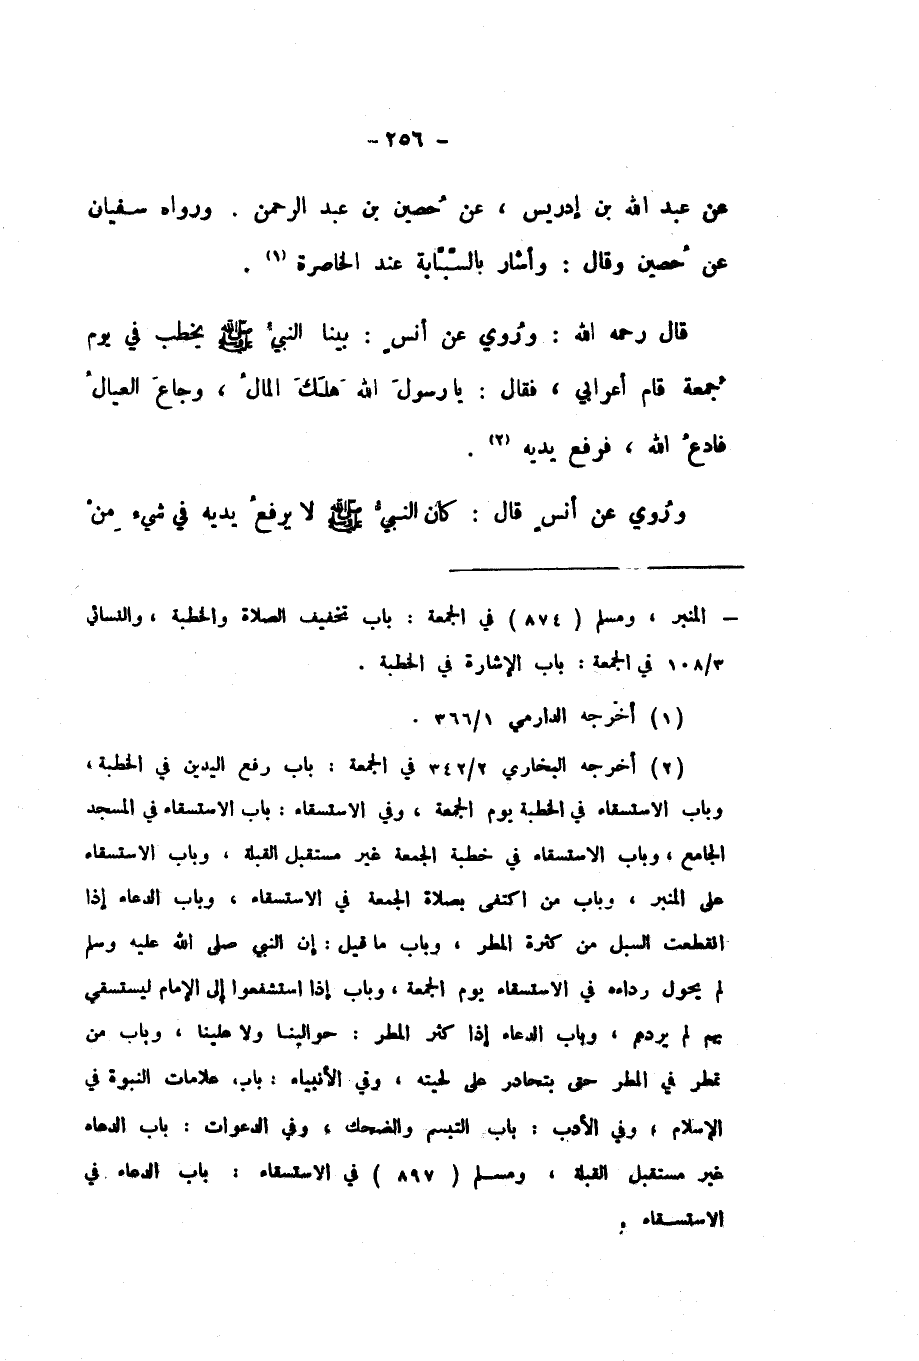 - ٢٥٦ -
عن عبد الله بن إدريس ، عن حُصين بن عبد الرحمن . ورواه سفيان
عن حُصين وقال : وأشار بالسَّبَّابة عند الخاصرة (١) .
قال رحمه الله : ورُوي عن أنسٍ : بينا النبيُّ ﷺ يخطب في يوم
جُمعة قام أعرابي ، فقال : يا رسولَ الله هَلَكَ المالُ ، وجاعَ العيالُ
فادعُ الله ، فرفع يديه (٢) .
ورُوي عن أنسٍ قال : كان النبيُّ ﷺ لا يرفعُ يديه في شيء مِنْ
ـ المنبر ، ومسلم ( ٨٧٤ ) في الجمعة : باب تخفيف الصلاة والخطبة ، والنسائي
١٠٨/٣ في الجمعة : باب الإشارة في الخطبة .
(١) أخرجه الدارمي ٣٦٦/١ .
(٢) أخرجه البخاري ٣٤٢/٢ في الجمعة : باب رفع اليدين في الخطبة ،
وباب الاستسقاء في الخطبة يوم الجمعة ، وفي الاستسقاء : باب الاستسقاء في المسجد
الجامع ، وباب الاستسقاء في خطبة الجمعة غير مستقبل القبلة ، وباب الاستسقاء
على المنبر ، وباب من اكتفى بصلاة الجمعة في الاستسقاء ، وباب الدعاء إذا
انقطعت السبل من كثرة المطر ، وباب ما قيل : إن النبي صلى الله عليه وسلم
لم يحول رداءه في الاستسقاء يوم الجمعة ، وباب إذا استشفعوا إلى الإمام ليستسقي
بهم لم يردهم ، وباب الدعاء إذا كثر المطر : حوالينا ولا علينا ، وباب من
تمطر في المطر حتى يتحادر على لحيته ، وفي الأنبياء : باب علامات النبوة في
الإسلام ، وفي الأدب : باب التبسم والضحك ، وفي الدعوات : باب الدعاء
غير مستقبل القبلة ، ومسلم ( ٨٩٧ ) في الاستسقاء : باب الدعاء في
الاستسقاء .